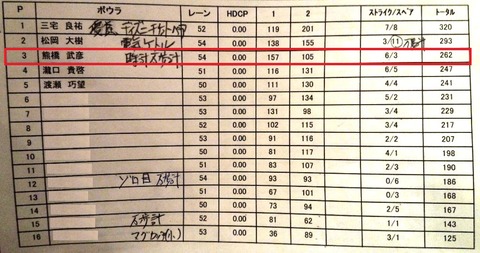 P ボウラ レーン HDCP 1 2 ストライク/スペア トータル
1 三宅 良祐 優勝 ディズニーチケット 52 0.00 119 201 7/8 320
2 松岡 大樹 電気ケトル 54 0.00 138 155 3/11 万歩計 293
3 熊橋 武彦 時計 54 0.00 157 105 6/3 262
4 瀧口 貴啓 51 0.00 116 131 6/5 247
5 渡瀬 巧望 50 0.00 111 130 4/4 241
6 53 0.00 97 134 5/2 231
7 54 0.00 131 98 3/4 229
8 52 0.00 102 115 3/4 217
9 53 0.00 91 116 2/2 207
10 50 0.00 81 117 4/1 198
11 51 0.00 83 107 2/3 190
12 ゾロ目 万歩計 54 0.00 93 93 0/6 186
13 51 0.00 67 101 0/3 168
14 50 0.00 73 94 2/5 167
15 万歩計 52 0.00 81 62 1/1 143
16 マグロッケ(小) 53 0.00 36 89 3/1 125